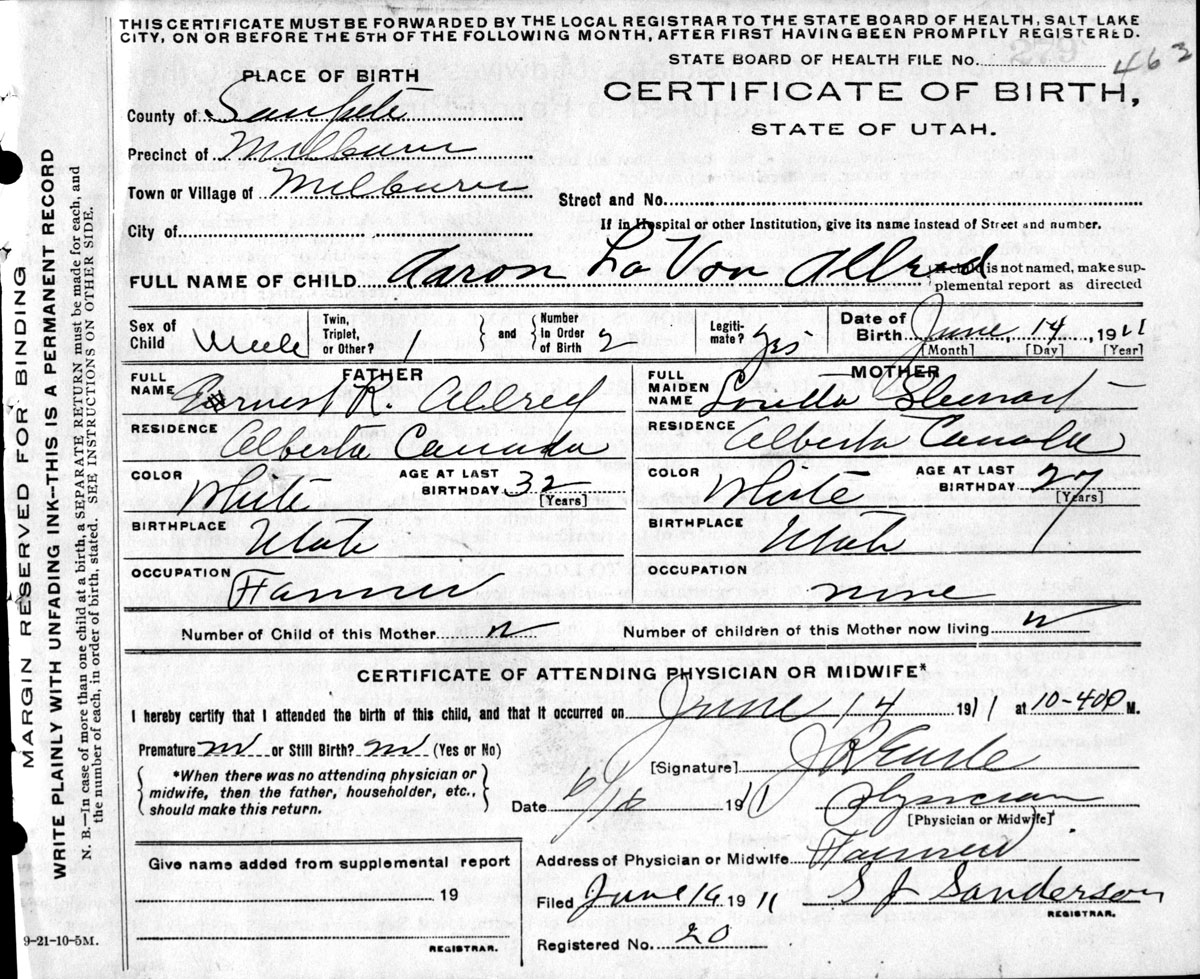 THIS CERTIFICATE MUST BE FORWARDED BY THE LOCAL REGISTRAR TO THE STATE BOARD OF HEALTH, SALT LAKE
CITY, ON OR BEFORE THE 5TH OF THE FOLLOWING MONTH, AFTER FIRST HAVING BEEN PROMPTLY REGISTERED.
STATE BOARD OF HEALTH FILE No. 279 463
PLACE OF BIRTH
CERTIFICATE OF BIRTH,
STATE OF UTAH.
County of Sanpete
Precinct of Milburn
Town or Village of Milburn
Street and No.
City of
If in Hospital or other Institution, give its name instead of Street and number.
FULL NAME OF CHILD Aaron La Von Allred
If child is not named, make sup-
plemental report as directed
Sex of Child Male
Twin, Triplet, or Other? 1
and
Number In Order of Birth 2
Legiti-mate? yes
Date of Birth June 14, 1911
[Month] [Day] [Year]
FATHER
FULL NAME Earnest R. Allred
RESIDENCE Alberta Canada
COLOR White
AGE AT LAST BIRTHDAY 32
[Years]
BIRTHPLACE Utah
OCCUPATION Farmer
MOTHER
FULL MAIDEN NAME Loretta
RESIDENCE Alberta Canada
COLOR White
AGE AT LAST BIRTHDAY 27
[Years]
BIRTHPLACE Utah
OCCUPATION none
Number of Child of this Mother
Number of children of this Mother now living
CERTIFICATE OF ATTENDING PHYSICIAN OR MIDWIFE*
I hereby certify that I attended the birth of this child, and that it occurred on June 14 1911 at 10-40 P M.
Premature no or Still Birth? no (Yes or No)
*When there was no attending physician or
midwife, then the father, householder, etc.,
should make this return.
[Signature]
Date 6/16 1911 Physician
[Physician or Midwife]
Give name added from supplemental report
19
REGISTRAR.
Address of Physician or Midwife
Filed June 16 1911 S J Sanderson
REGISTRAR.
Registered No. 20
9-21-10-5M.
MARGIN RESERVED FOR BINDING
WRITE PLAINLY WITH UNFADING INK--THIS IS A PERMANENT RECORD
N. B.--In case of more than one child at a birth, a SEPARATE RETURN must be made for each, and
the number of each, in order of birth, stated. SEE INSTRUCTIONS ON OTHER SIDE.